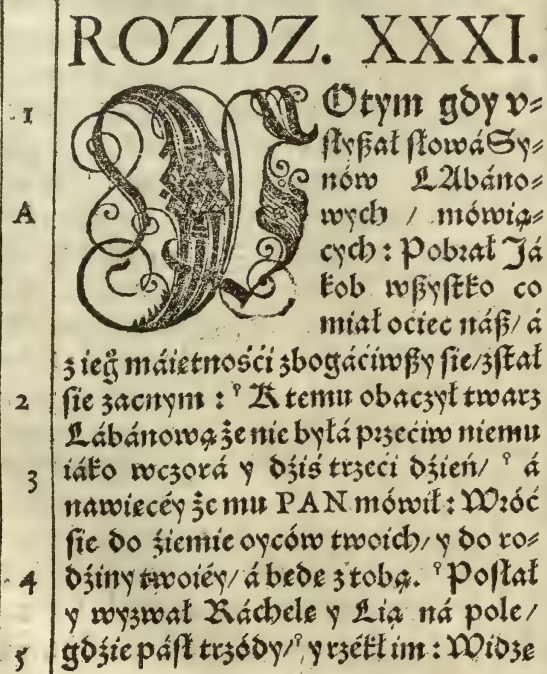 ROZDZ. XXXI.
POtym gdy v⸗
słyßał słowá Sy⸗
nów LAbáno⸗
wych / mówią⸗
cych : Pobrał Já
kob wßystko co
miał ociec náß / á
z ieg̃ máiętnośći zbogáćiwßy sie / zstał
sie zacnym : ⸰ K temu obaczył twarz
Lábánową że nie byłá przećiw niemu
iáko wczorá y dźiś trzeći dźień / ⸰ á
nawiecéy że mu PAN mówił : Wróć
sie do źiemie oyców twoich / y do ro⸗
dźiny twoiéy / á bede z tobą. ⸰ Posłał
y wyzwał Ráchele y Lią ná pole /
gdźie pásł trzódy / ⸰ y rzékł im : Widze
1
A
2
3
4
5